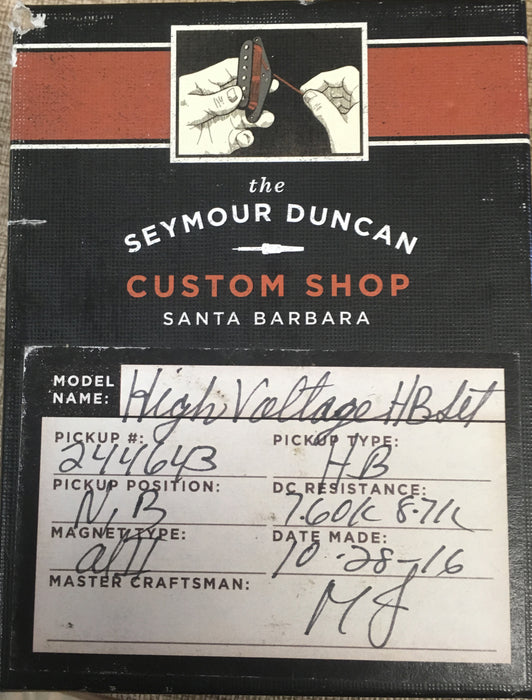 the
SEYMOUR DUNCAN
CUSTOM SHOP
SANTA BARBARA
MODEL NAME: High Voltage HB Set
PICKUP #: 244643
PICKUP TYPE: HB
PICKUP POSITION: N, B
DC RESISTANCE: 7.60K 8.7K
MAGNET TYPE: aIII
DATE MADE: 10-28-16
MASTER CRAFTSMAN: MJ